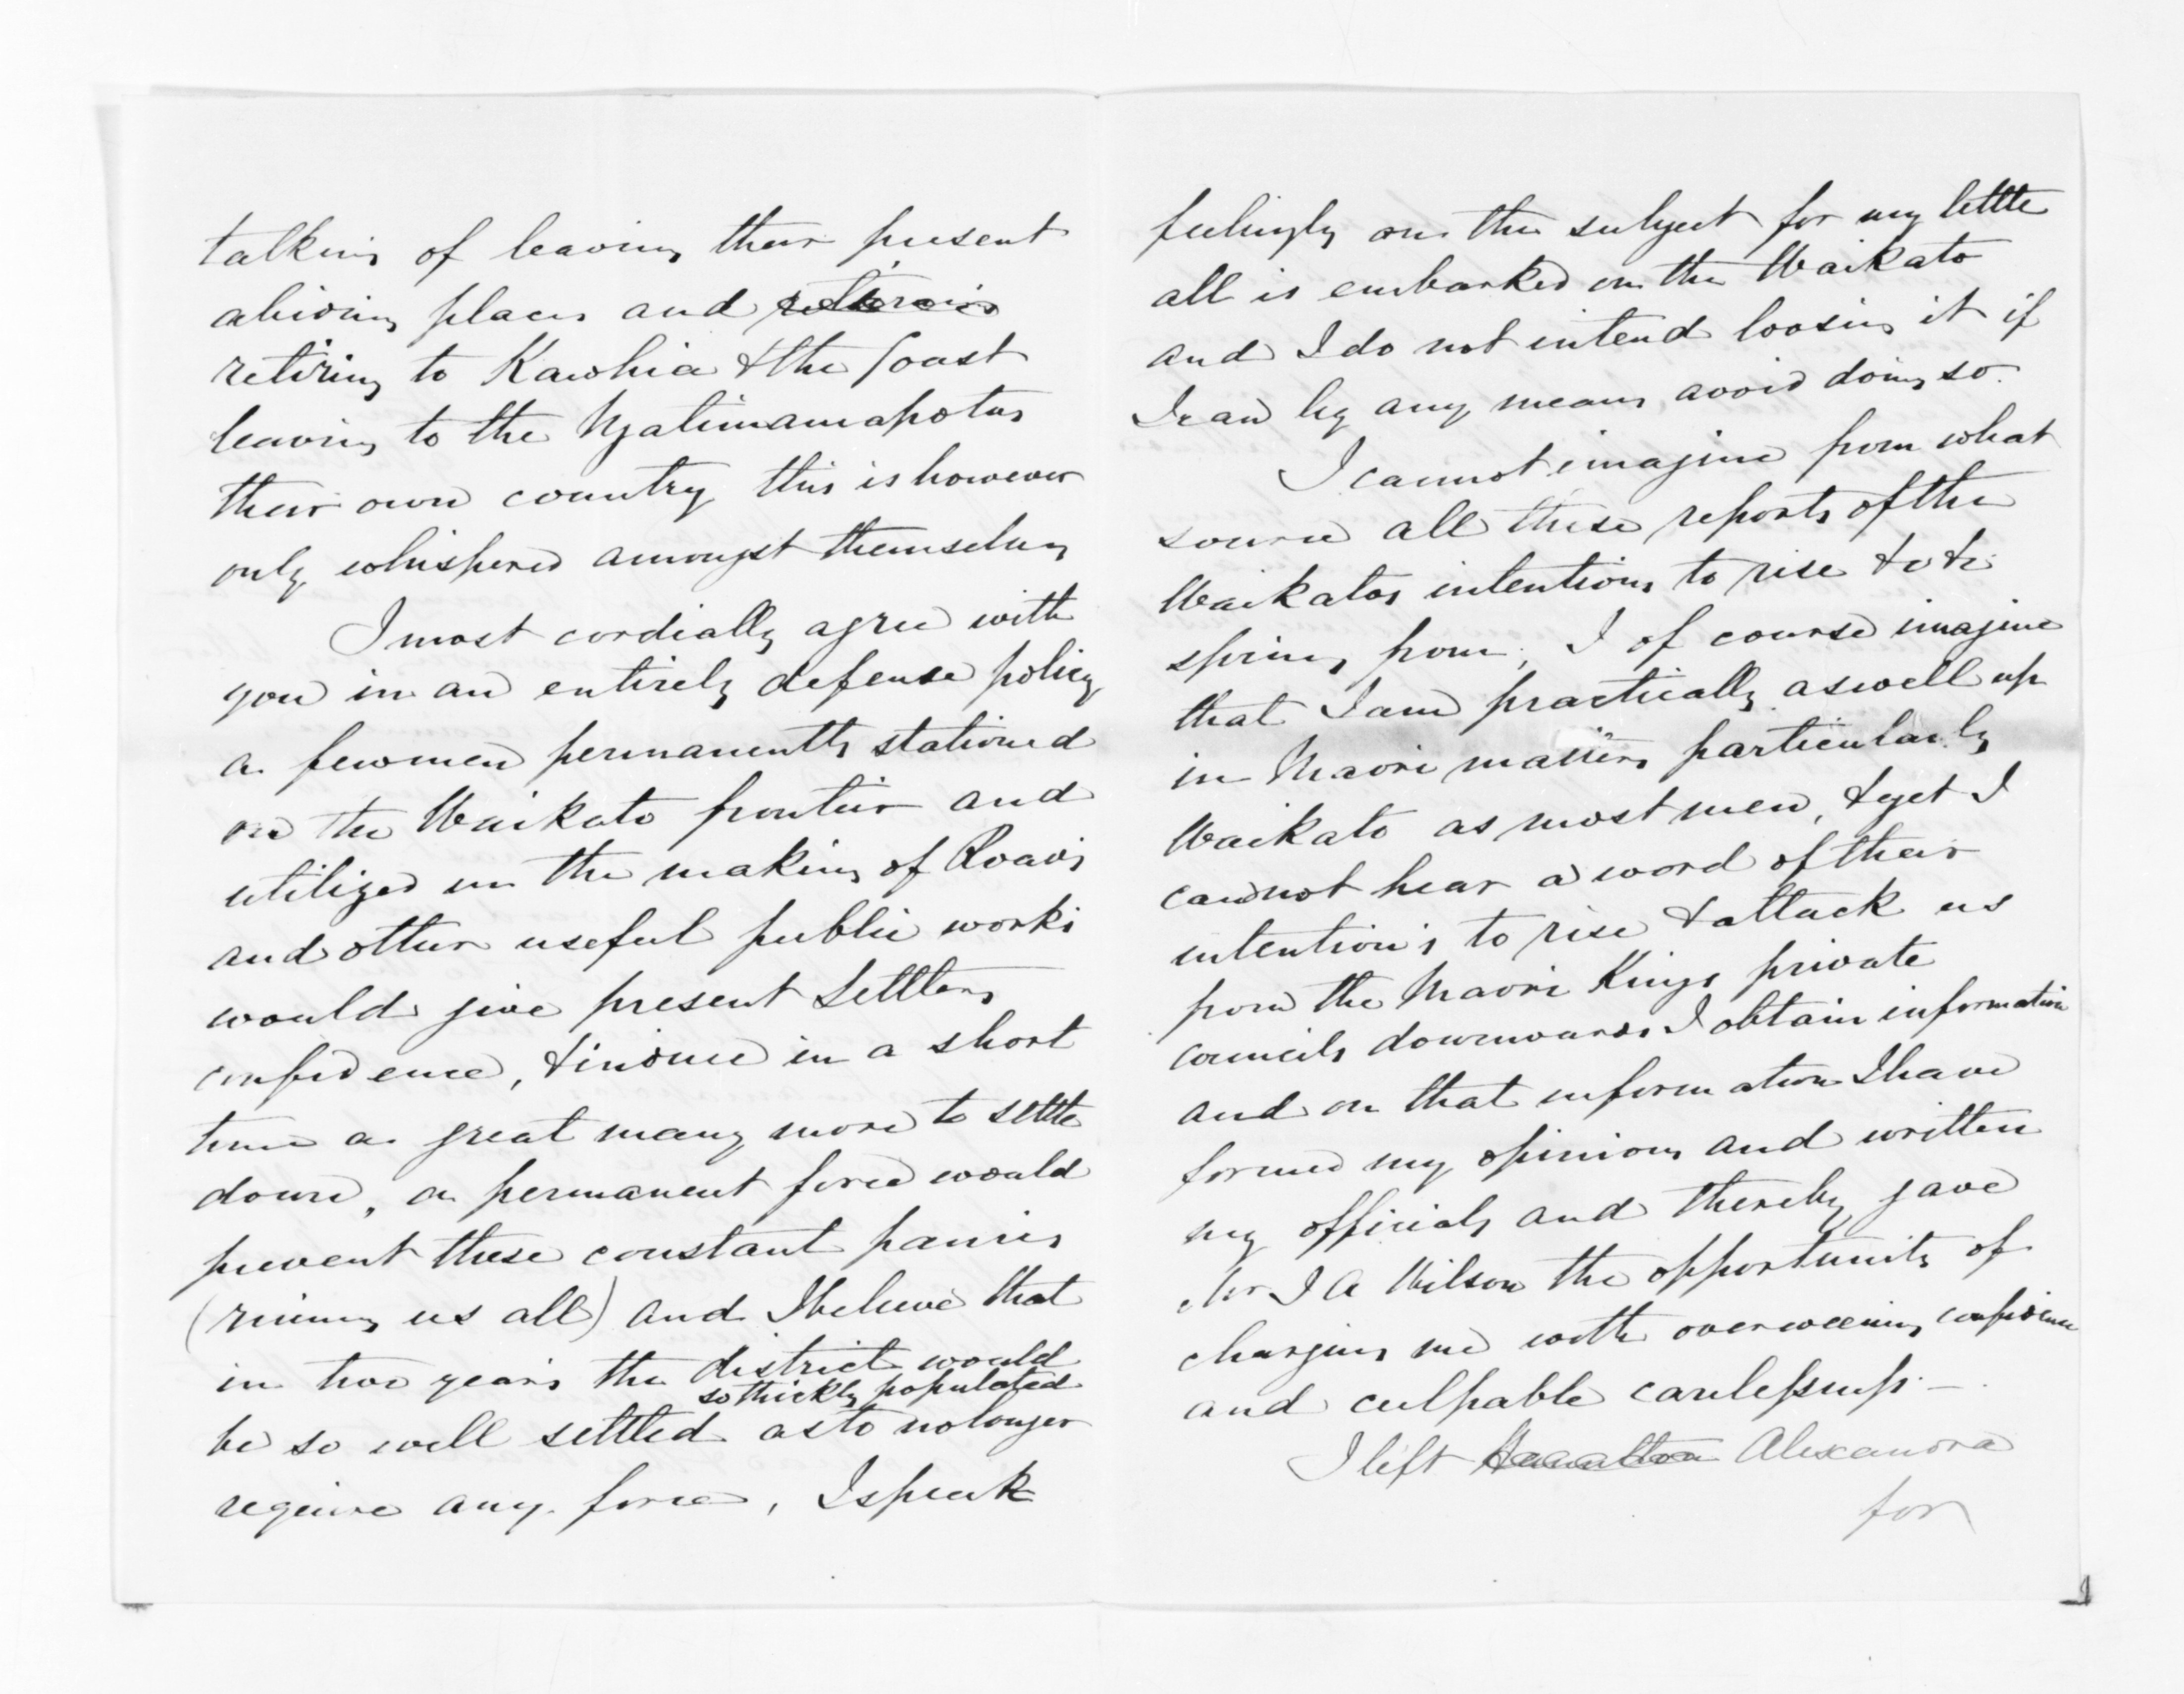 talking of leaving their present
abiding places and
retiring to Kawhia & the Coast
leaving to the Ngatimaniapotos
their own country this is however
only whispered amongst themselves
I most cordially agree with
you in an entirely defense policy
a few men permanently stationed
on the Waikato frontier and
utilized in the making of Roads
and other useful public works
would give present Settlers
confidence, & induce in a short
time a great many more to settle
down, a permanent force would
prevent these constant panics
(ruining us all) and I believe that
in two years the district would
so thickly populated
be so well settled as to no longer
require any force, I speak
feelingly on the subject for my little
all is embarked on the Waikato
and I do not intend loosing it if
I can by any means avoid doing so.
I cannot imagine from what
source all these reports of the
Waikatos intentions to rise &c &c
spring from, I of course imagine
that I am practically as well up
in Maori matters particularly
Waikato as most men, & yet I
cannot hear a word of their
intention's to rise & attack us
from the Maori Kings private
councils downwards I obtain information
and on that information I have
formed my opinions and written
my officials and thereby gave
Mr J A Wilson the opportunity of
charging me with overweening confidence
and culpable carelessness. —
I left Hamilton Alexandra
for